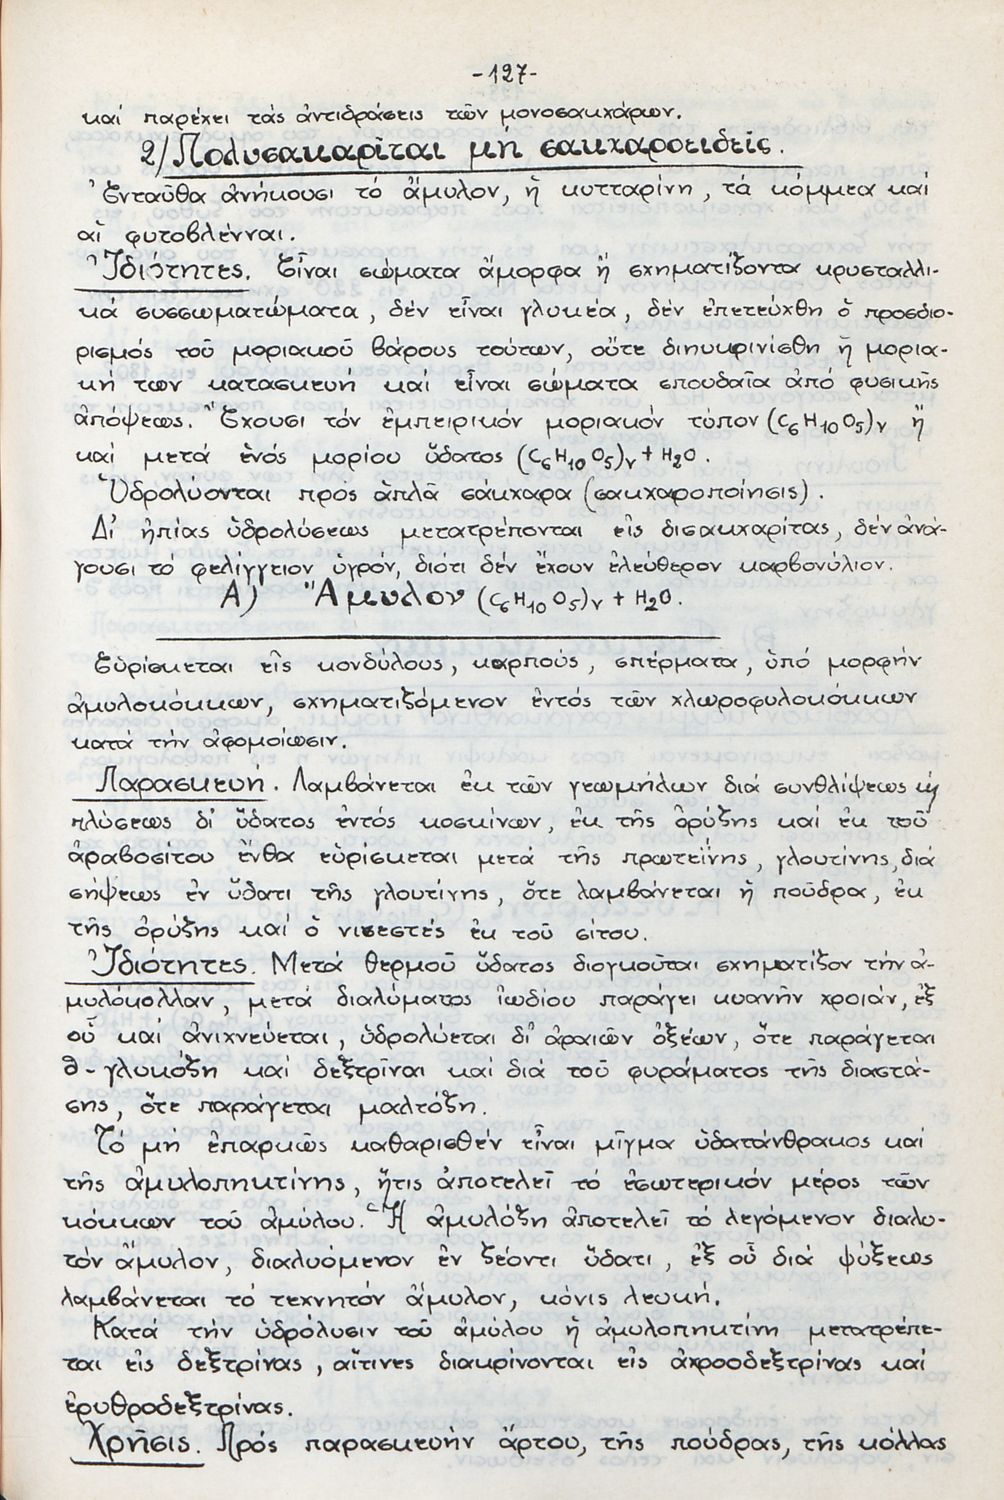 -127-
καί παρέχει τάς ἀντιδράσεις τῶν μονοσακχάρων.
2/Πολυσακαρῖται μή σακχαροειδεῖς.
Ἐνταῦθα ἀνήκουσι τό ἄμυλον, ἡ κυτταρίνη, τά κόμμεα καί
αἱ φυτοβλένναι.
Ἰδιότητες. Εἶναι σώματα ἄμορφα ἤ σχηματίζοντα κρυσταλλι-
κά συσσωματώματα, δέν εἶναι γλυκέα, δέν ἐπετεύχθη ὁ προσδιο-
ρισμός τοῦ μοριακοῦ βάρους τούτων, οὔτε διηυκρινίσθη ἡ μορια-
κή των κατασκευή καί εἶναι σώματα σπουδαῖα ἀπό φυσικῆς
ἀπόψεως. Ἔχουσι τόν ἐμπειρικόν μοριακόν τύπον (C6H10O5)ν ἤ
καί μετά ἑνός μορίου ὕδατος (C6H10O5)ν + H2O.
Ὑδρολύονται πρός ἁπλᾶ σάκχαρα (σακχαροποίησις).
Δι' ἠπίας ὑδρολύσεως μετατρέπονται εἰς δισακχαρίτας, δέν ἀνά-
γουσι τό φελίγγειον ὑγρόν, διότι δέν ἔχουν ἐλεύθερον καρβονύλιον.
Α) Ἄμυλον (C6H10O5)ν + H2O.
Εὑρίσκεται εἰς κονδύλους, καρπούς, σπέρματα, ὑπό μορφήν
ἀμυλοκόκκων, σχηματιζόμενον ἐντός τῶν χλωροφυλοκόκκων
κατά τήν ἀφομοίωσιν.
Παρασκευή. Λαμβάνεται ἐκ τῶν γεωμήλων διά συνθλίψεως ϗ
πλύσεως δι' ὕδατος ἐντός κοσκίνων, ἐκ τῆς ὀρύζης καί ἐκ τοῦ
ἀραβοσίτου ἔνθα εὑρίσκεται μετά τῆς πρωτεΐνης, γλουτίνης, διά
σήψεως ἐν ὕδατι τῆς γλουτίνης, ὅτε λαμβάνεται ἡ πούδρα, ἐκ
τῆς ὀρύζης καί ὁ νισεστές ἐκ τοῦ σίτου.
Ἰδιότητες. Μετά θερμοῦ ὕδατος διογκοῦται σχηματίζον τήν ἀ-
μυλόκολλαν, μετά διαλύματος ἰωδίου παράγει κυανῆν χροιάν, ἐξ
οὗ καί ἀνιχνεύεται, ὑδρολύεται δι' ἀραιῶν ὀξέων, ὅτε παράγεται
∂-γλυκόζη καί δεξτρῖναι καί διά τοῦ φυράματος τῆς διαστά-
σης, ὅτε παράγεται μαλτόζη.
Τό μή ἐπαρκῶς καθαρισθέν εἶναι μῖγμα ὑδατάνθρακος καί
τῆς ἀμυλοπηκτίνης, ἥτις ἀποτελεῖ τό ἐσωτερικόν μέρος τῶν
κόκκων τοῦ ἀμύλου. Ἡ ἀμυλόζη ἀποτελεῖ τό λεγόμενον διαλυ-
τόν ἄμυλον, διαλυόμενον ἐν ζέοντι ὕδατι, ἐξ οὗ διά ψύξεως
λαμβάνεται τό τεχνητόν ἄμυλον, κόνις λευκή.
Κατά τήν ὑδρόλυσιν τοῦ ἀμύλου ἡ ἀμυλοπηκτίνη μετατρέπε-
ται εἰς δεξτρίνας, αἵτινες διακρίνονται εἰς ἀχροοδεξτρίνας καί
ἐρυθροδεξτρίνας.
Χρῆσις. Πρός παρασκευήν ἄρτου, τῆς πούδρας, τῆς κόλλας